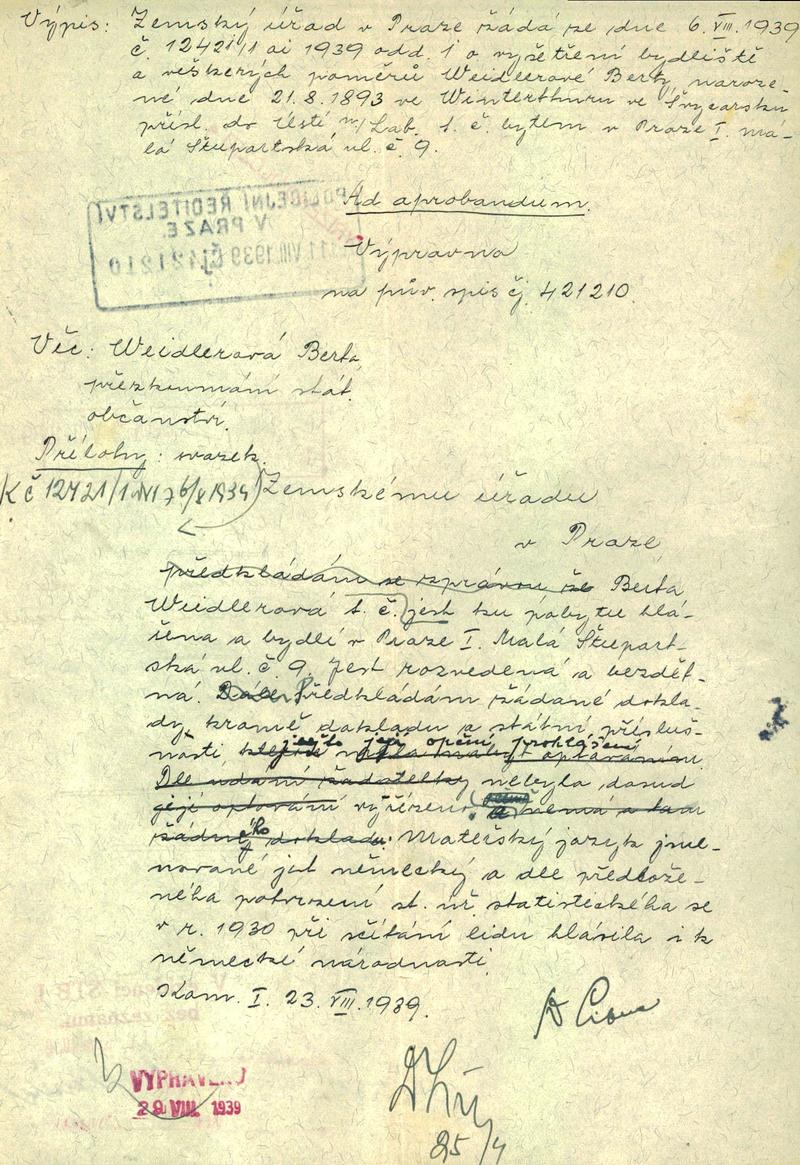 Výpis: Zemský úřad v Praze žádá ze dne 6. VIII. 1939
č. 12421/1 ai 1939 odd. 1 o vyšetření bydliště
a veškerých poměrů Weidlerové Berty, naroze-
né dne 21.8.1893 ve Winterthuru ve Švýcarsku
přísl. do Ústí n/Lab. t. č. bytem v Praze I. Ma-
lá Štupartská ul. č. 9.
POLICEJNÍ ŘEDITELSTVÍ
V PRAZE
11 VIII. 1939 Čj 421210
Ad aprobandum.
Výpravna
na pův. spis čj. 421210.
Věc: Weidlerová Berta,
přezkoumání stát.
občanství.
Přílohy: svazek.
K č 12421/1
Zemskému úřadu
v Praze
předkládám se zprávou že Berta
Weidlerová t. č. jest ku pobytu hlá-
šena a bydlí v Praze I. Malá Štupart-
ská ul. č. 9. Jest rozvedená a bezdět-
ná. Dále Předkládám žádané dokla-
dy, kromě dokladu o státní přísluš-
ježto její opční prohlášení
nosti
Dle udání žadatelky nebylo dosud
její optování vyřízeno. a nemá o tom
žádného dokladu. Mateřský jazyk jme-
nované jest německý a dle předlože-
ného potvrzení st. úř. statistického se
v r. 1930 při sčítání lidu hlásila i k
německé národnosti.
Kom. I. 23. VIII. 1939.
VYPRAVENO
29 VIII. 1939
25/